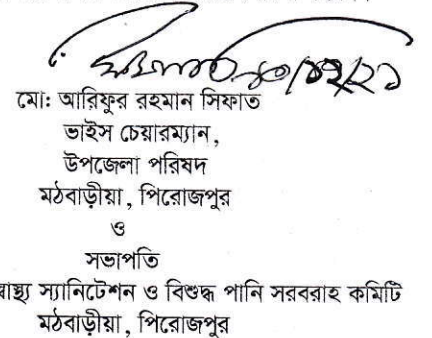 মো: আরিফুর রহমান সিফাত
ভাইস চেয়ারম্যান,
উপজেলা পরিষদ
মঠবাড়ীয়া, পিরোজপুর
ও
সভাপতি
স্যানিটেশন ও বিশুদ্ধ পানি সরবরাহ কমিটি
মঠবাড়ীয়া, পিরোজপুর